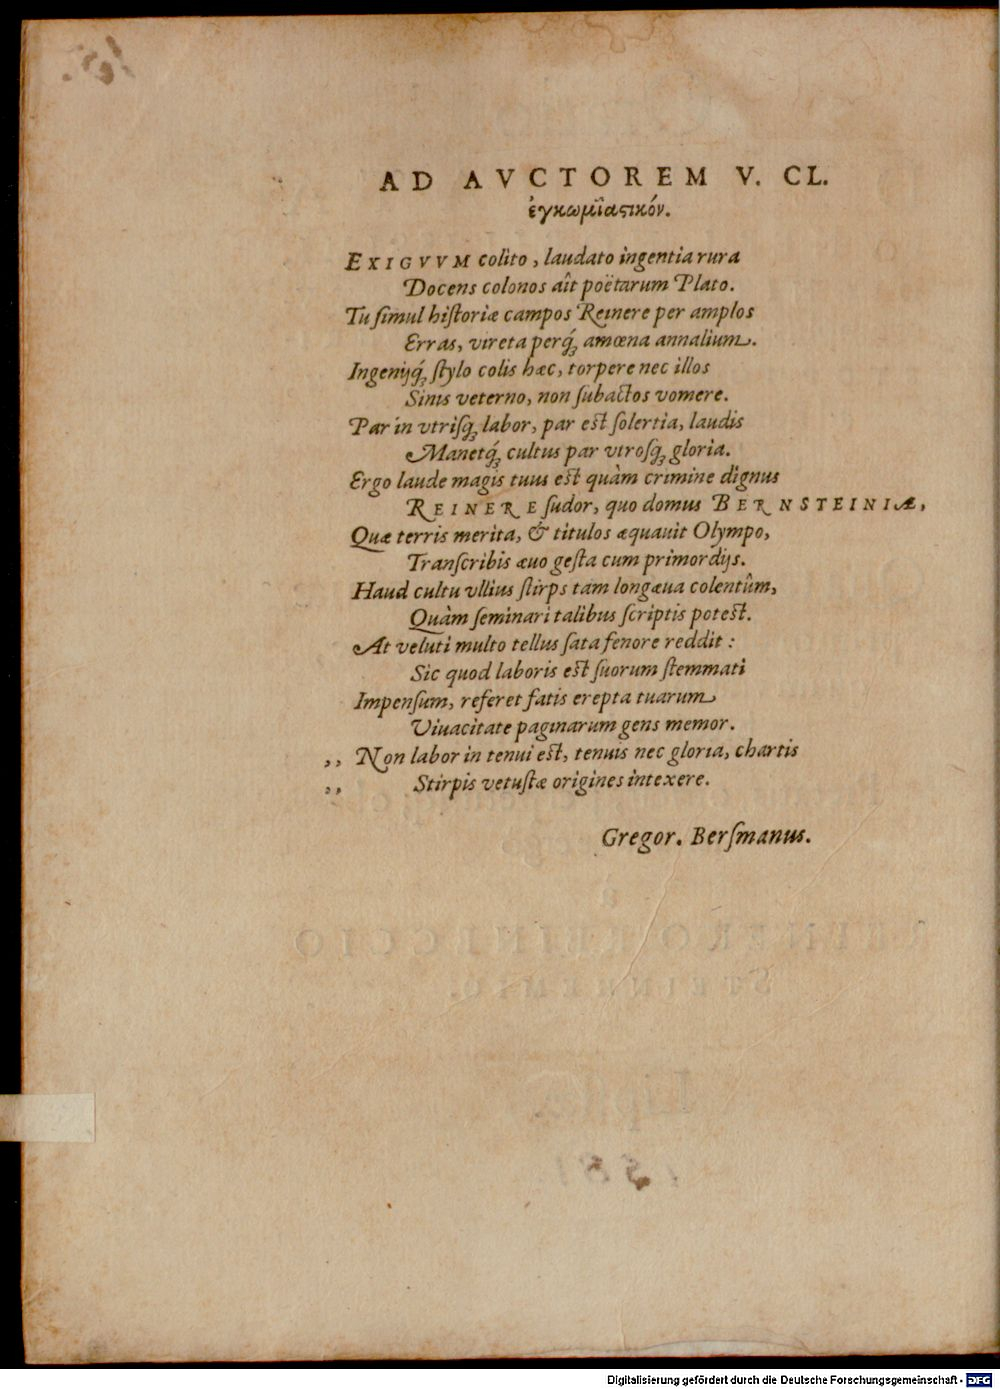 AD AVCTOREM V. CL.
ἐγκωμϊαϛικόν.
EXIGVVM colito, laudato ingentia rura
Docens colonos aît poëtarum Plato.
Tu ſimul hiſtoriæ campos Reinere per amplos
Erras, vireta perq́ꝫ amœna annalium.
Ingenijq́ꝫ ſtylo colis hæc, torpere nec illos
Sinis veterno, non ſubactos vomere.
Par in vtriſqꝫ labor, par est ſolertia, laudis
Manetq́ꝫ cultus par vtroſqꝫ gloria.
Ergo laude magis tuus est quàm crimine dignus
REINERE ſudor, quo domus BERNSTEINIÆ,
Quæ terris merita, & titulos æquauit Olympo,
Tranſcribis æuo geſta cum primordijs.
Haud cultu vllius ſtirps tam longæua colentûm,
Quàm ſeminari talibus ſcriptis potest.
At veluti multo tellus ſata fenore reddit :
Sic quod laboris est ſuorum ſtemmati
Impenſum, referet fatis erepta tuarum
Viuacitate paginarum gens memor.
,, Non labor in tenui est, tenuis nec gloria, chartis
,, Stirpis vetuſtæ origines intexere.
Gregor. Berſmanus.
Digitalisierung gefördert durch die Deutsche Forschungsgemeinschaft - DFG